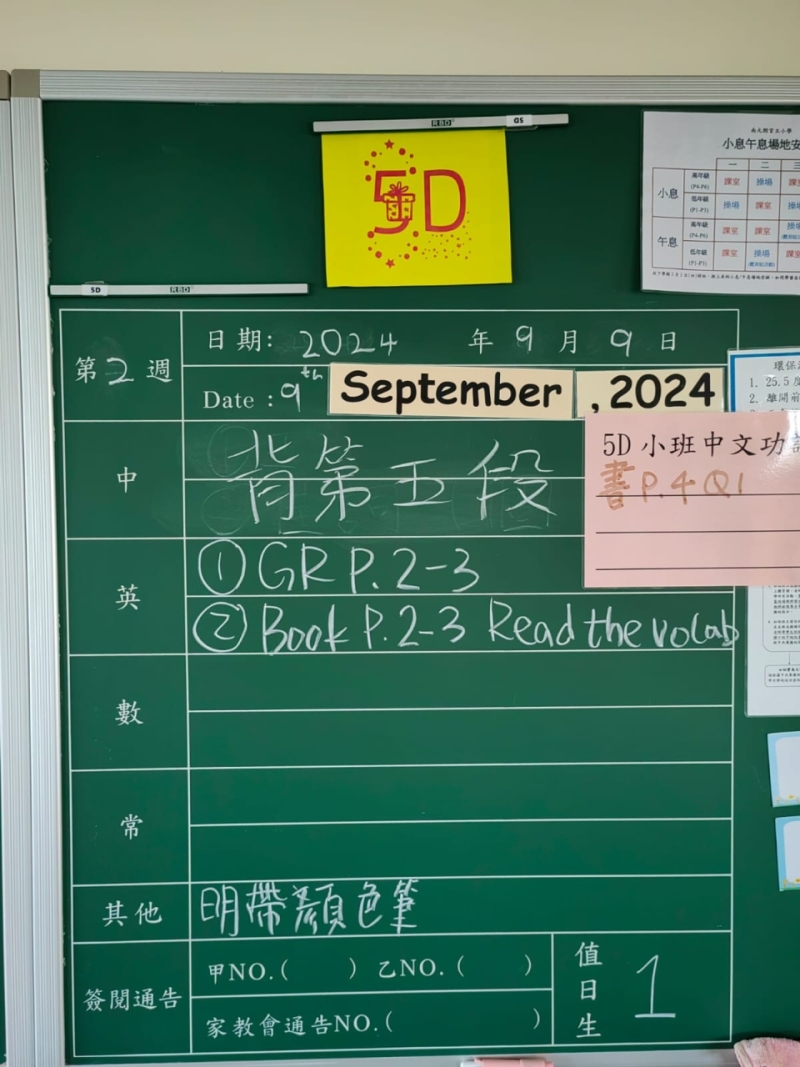 RBD GS
5D
5D RBD
南元朗官立小學
小息午息場地安
一 二 三
小息 高年級 (P4-P6) 課室 操場 課室
低年級 (P1-P3) 操場 課室 操場
午息 高年級 (P4-P6) 課室 課室 操場
低年級 (P1-P3) 課室 操場 課室
第2週
日期: 2024 年 9 月 9 日
Date : 9th September , 2024
環保
1. 25.5
2. 離開前
中 背第五段
5D 小班中文功
書P.4 Q1
英 ①GR P.2-3
②Book P.2-3 Read the volab
數
常
其他 明帶顏色筆
簽閱通告 甲NO.( ) 乙NO.( )
家教會通告NO.( )
值日生 1